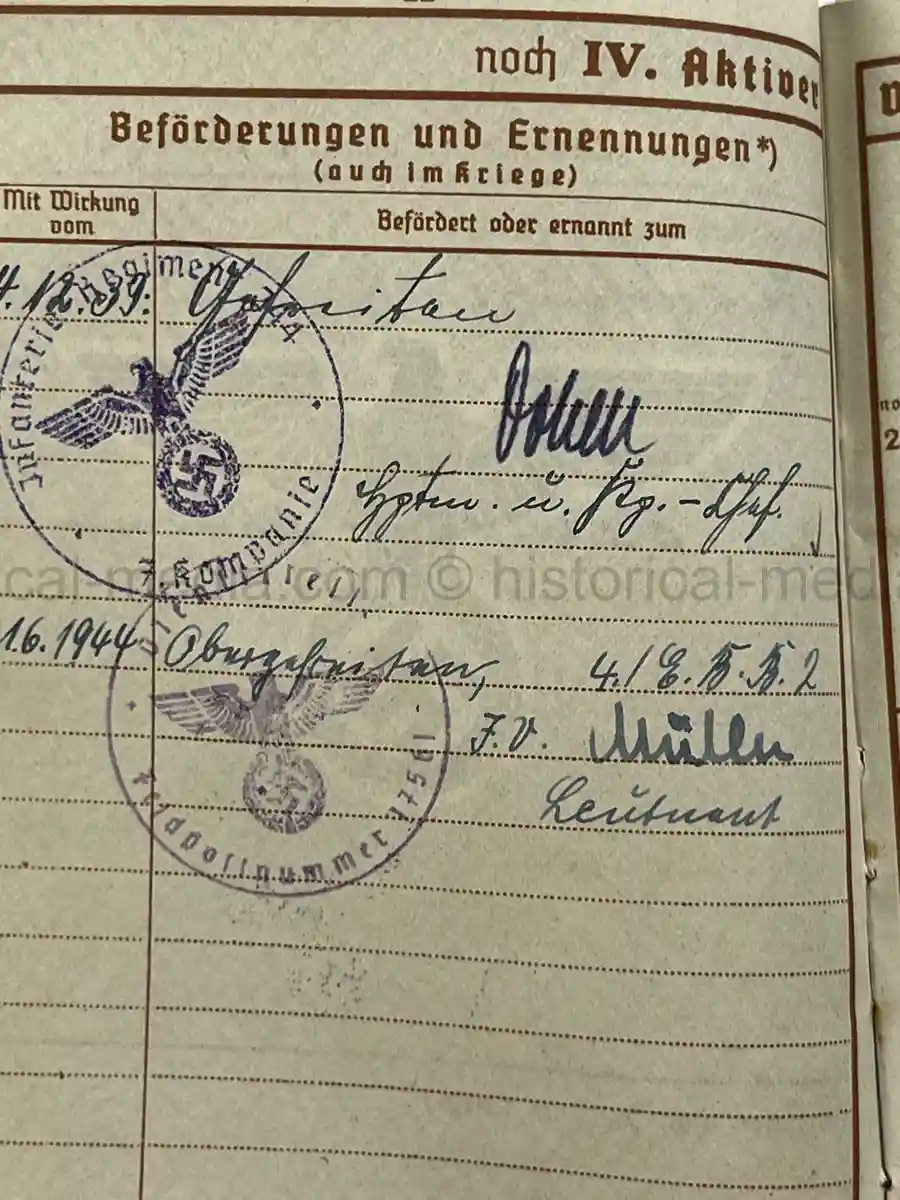 noch IV. Aktiver
Beförderungen und Ernennungen*)
(auch im Kriege)
Mit Wirkung vom
Befördert oder ernannt zum
12.39. Gefreiten
Infanterie Regiment
7. Kompanie
Hptm. u. Kp.-Chef.
cal-media.com © historical-med
1.6.1944 Obergefreiten, 4./E.B.B.2
J.V. Müller
Leutnant
Dienststelle
Feldpostnummer 17561
2